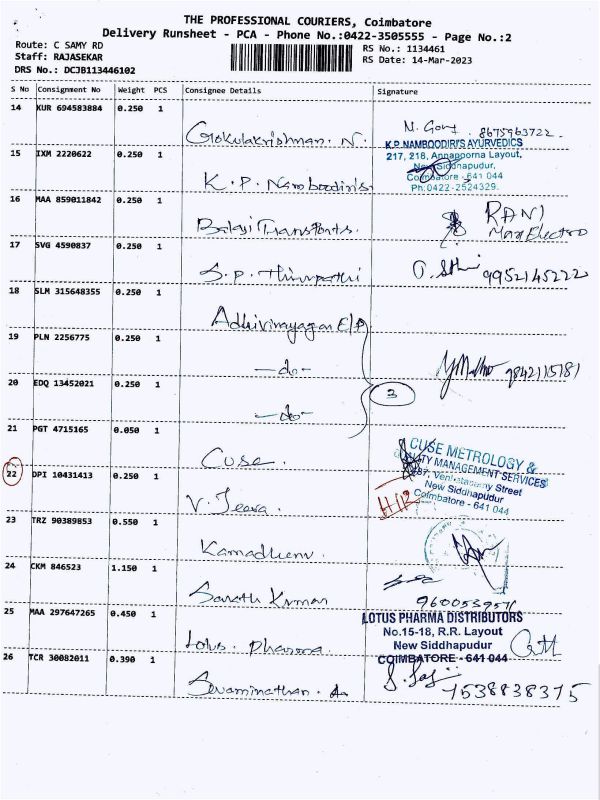 THE PROFESSIONAL COURIERS, Coimbatore
Delivery Runsheet - PCA - Phone No.:0422-3505555 - Page No.:2
Route: C SAMY RD
Staff: RAJASEKAR
DRS No.: DCJB113446102
RS No.: 1134461
RS Date: 14-Mar-2023
S No Consignment No Weight PCS Consignee Details Signature
14 KUR 694583884 0.250 1
Gokulakrishnan. N. 8675963722
15 IXM 2220622 0.250 1
K.P. Namboodiri's
K.P. NAMBOODIRI'S AYURVEDICS
217, 218, Annapporna Layout,
New Siddhapudur,
Coimbatore - 641 044
Ph:0422-2524329.
16 MAA 859011842 0.250 1
Balaji Transports.
RANI
Max Electro
17 SVG 4590837 0.250 1
S.P. Thirupathi 9952145222
18 SLM 315648355 0.250 1
Adhivinayagan E/P
19 PLN 2256775 0.250 1
-do-
9842115181
20 EDQ 13452021 0.250 1
-do-
3
21 PGT 4715165 0.050 1
Cuse.
CUSE METROLOGY &
QUALITY MANAGEMENT SERVICES
Street
New Siddhapudur
Coimbatore - 641 044
22 DPI 10431413 0.250 1
V. Jeeva.
23 TRZ 90389853 0.550 1
Kamadhenu.
24 CKM 846523 1.150 1
Sarath Kumar
25 MAA 297647265 0.450 1
Lotus. Pharma.
LOTUS PHARMA DISTRIBUTORS
No.15-18, R.R. Layout
New Siddhapudur
COIMBATORE - 641 044
26 TCR 30082011 0.390 1
Swaminathan.
7538838375